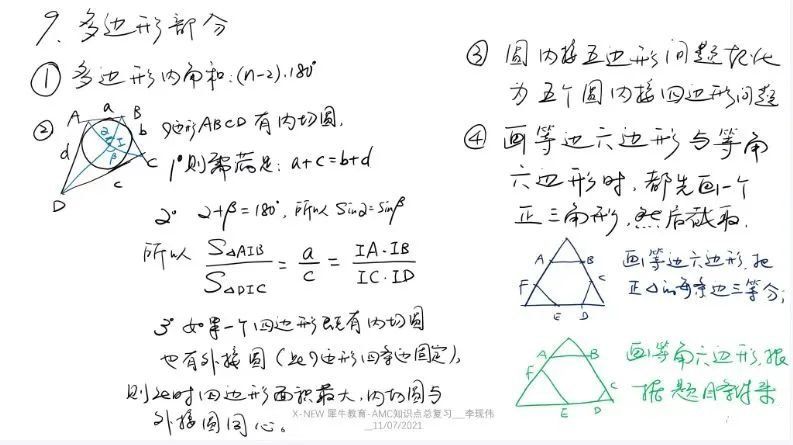 9. 多边形部分
① 多边形内角和:(n-2)·180°
② 四边形ABCD有内切圆.
A a B
α I b
d β C
c
D
1° 则需满足: a+c=b+d
2° α+β=180°, 所以 sinα=sinβ
所以 S△AIB / S△DIC = a/c = IA·IB / IC·ID
3° 如果一个四边形既有内切圆
也有外接圆(此四边形四条边固定),
则此时四边形面积最大,内切圆与
外接圆同心。
③ 圆内接五边形问题转化
为五个圆内接四边形问题
④ 画等边六边形与等角
六边形时, 都先画一个
正三角形, 然后截取.
A B
F C
E D
画等边六边形, 把
正△的每条边三等分;
A B
F C
E D
画等角六边形, 根
据题目条件来
X-NEW 犀牛教育-AMC知识点总复习__李现伟
__11/07/2021